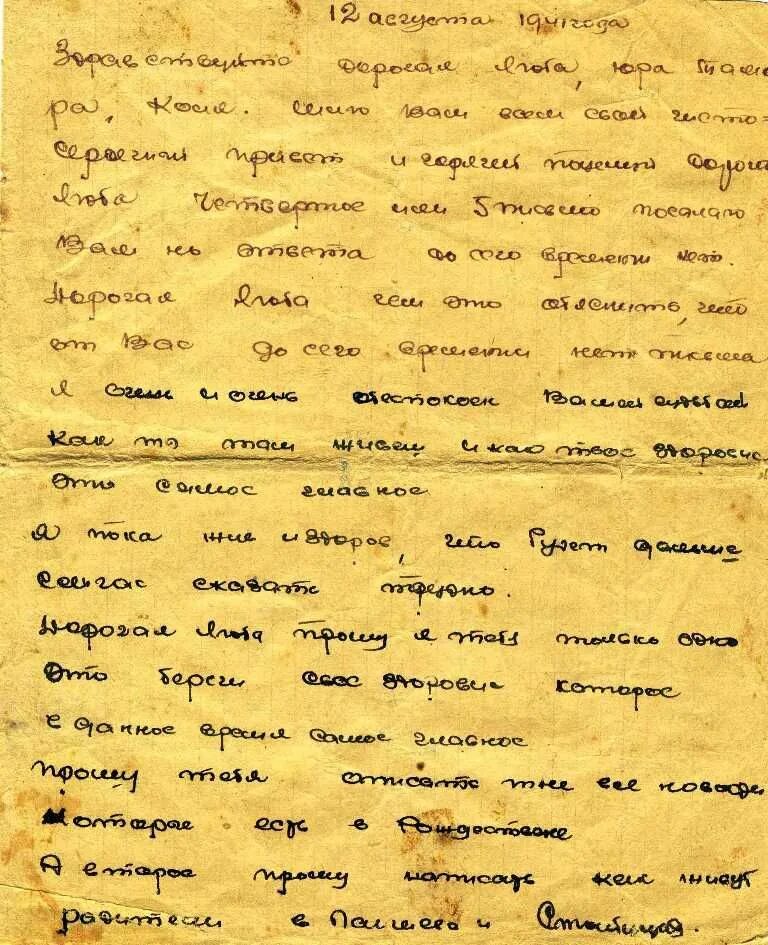 12 августа 1941 года
Здравствуйте дорогая Люба, Юра Тама-
ра, Коля. Шлю Вам всем свой чисто=
сердечный привет и горячий поцелуй Дорогая
Люба Четвертое или 5 письмо посылаю
Вам но ответа до сего времени нет.
Дорогая Люба чем это объяснить, что
от Вас до сего времени нет письма
Я очень и очень обеспокоен Вашей судьбой
Как ты там живеш и как твое здоровие
это самое главное
Я пока жив и здоров, что будет дальше
сейчас сказать трудно.
Дорогая Люба прошу я тебя только одно
это береги свое здоровие которое
в данное время самое главное
прошу тебя описать мне все новости
которые есть в Рождествене
А второе прошу написать как живут
родители в и